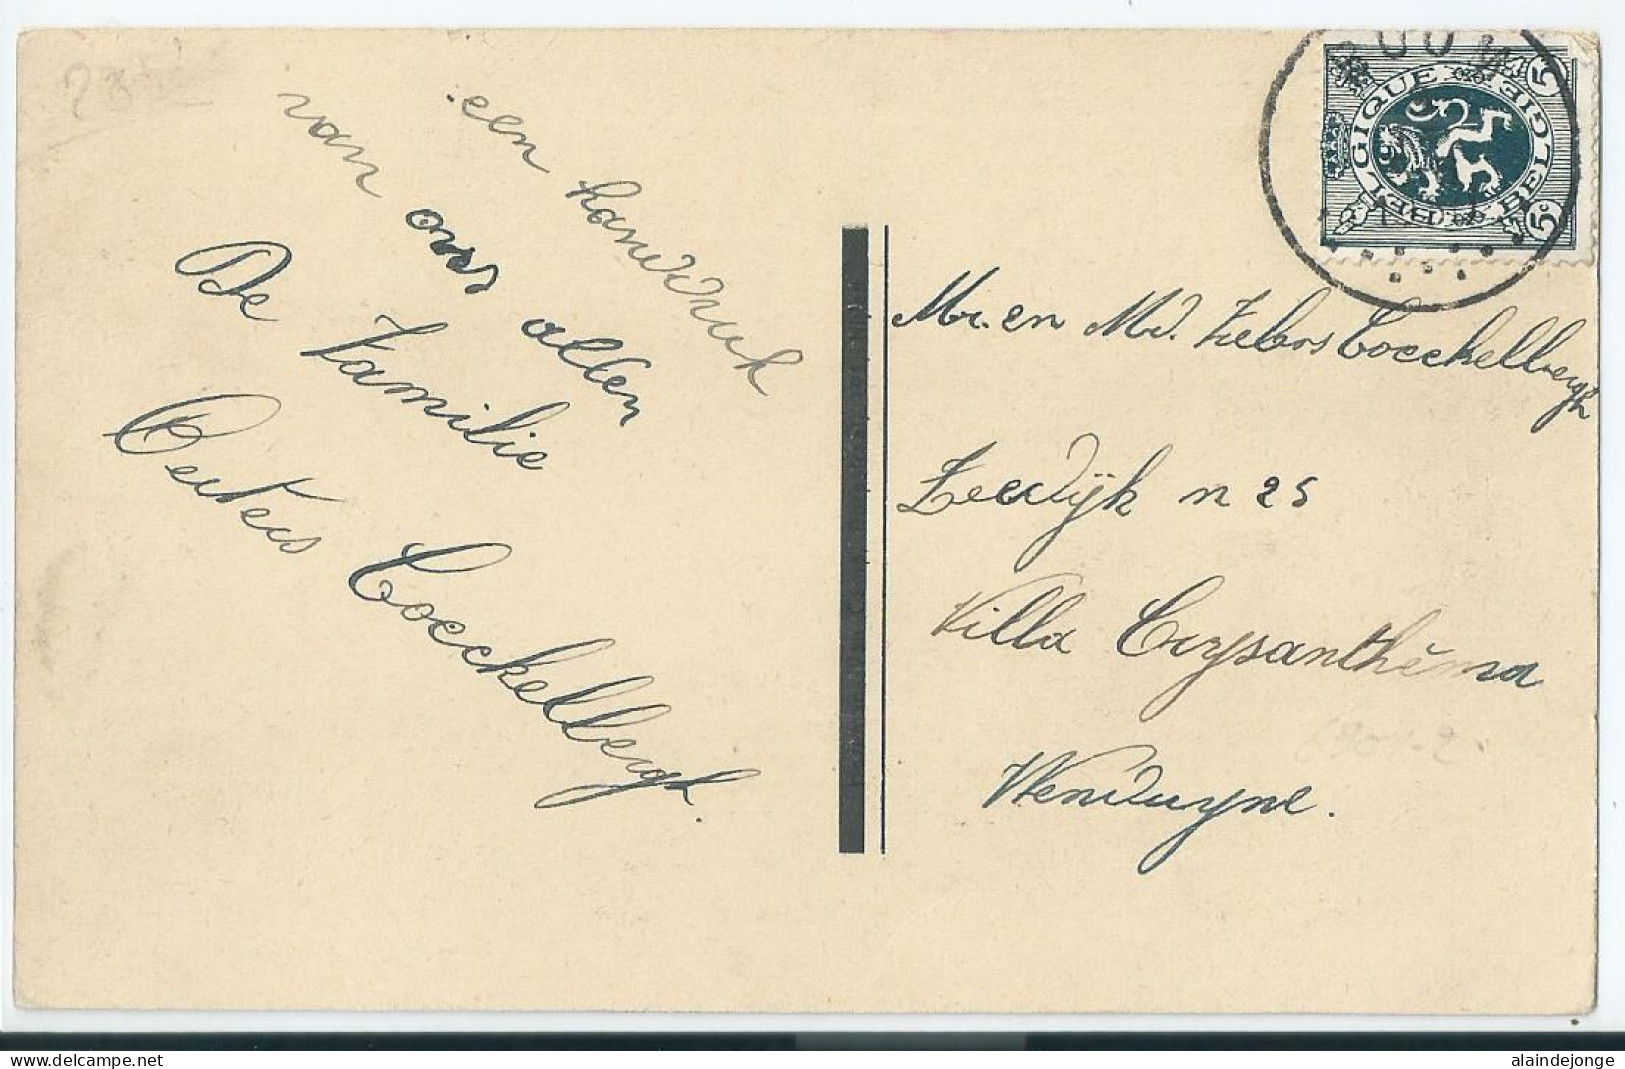 een handdruk
van ons allen
De Familie
Peeters Coeckelbergh.
BOOM
BELGIQUE
BELGIE
5c
5c
Mr. en Md. Coeckelbergh
Zeedijk n 25
Villa Crysanthéma
Wenduyne.
alaindejonge